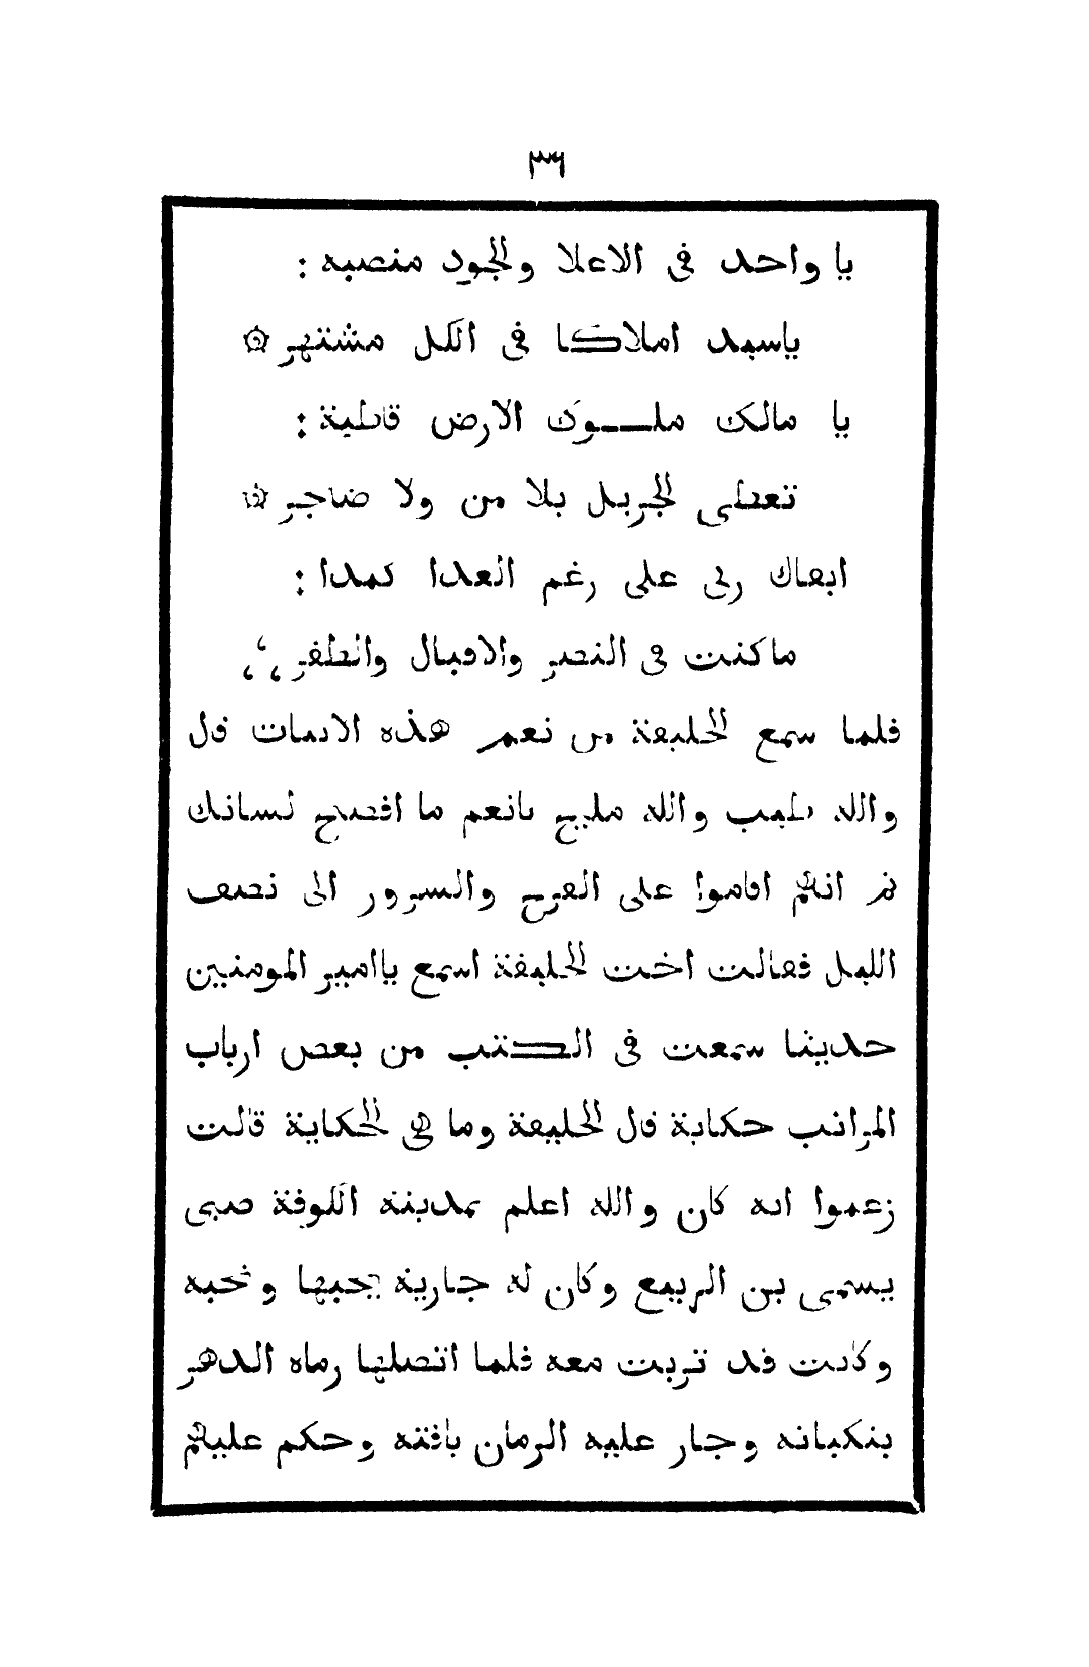 ٣٦
يا واحد فى الاعلا والجود منصبه :
ياسيد املاكا فى الكل مشتهر ۞
يا مالك ملـــوك الارض قاطبة :
تعطى الجزيل بلا من ولا ضاجر ۞
ابقاك ربى على رغم العدا كمدا :
ماكنت فى النصر والاقبال والظفر ،،،
فلما سمع الخليفة من نعم هذه الابيات قال
والله طيب والله مليح يانعم ما افصح لسانك
ثم انهم اقاموا على الفرح والسرور الى نصف
الليل فقالت اخت الخليفة اسمع ياامير المومنين
حديثا سمعت فى الكتب من بعض ارباب
المراتب حكاية قال الخليفة وما هى الحكاية قالت
زعموا انه كان والله اعلم بمدينة الكوفة صبى
يسمى بن الربيع وكان له جارية يحبها وتحبه
وكانت قد تربت معه فلما اتصلها رماه الدهر
بنكباته وجار عليه الزمان بافته وحكم عليهم